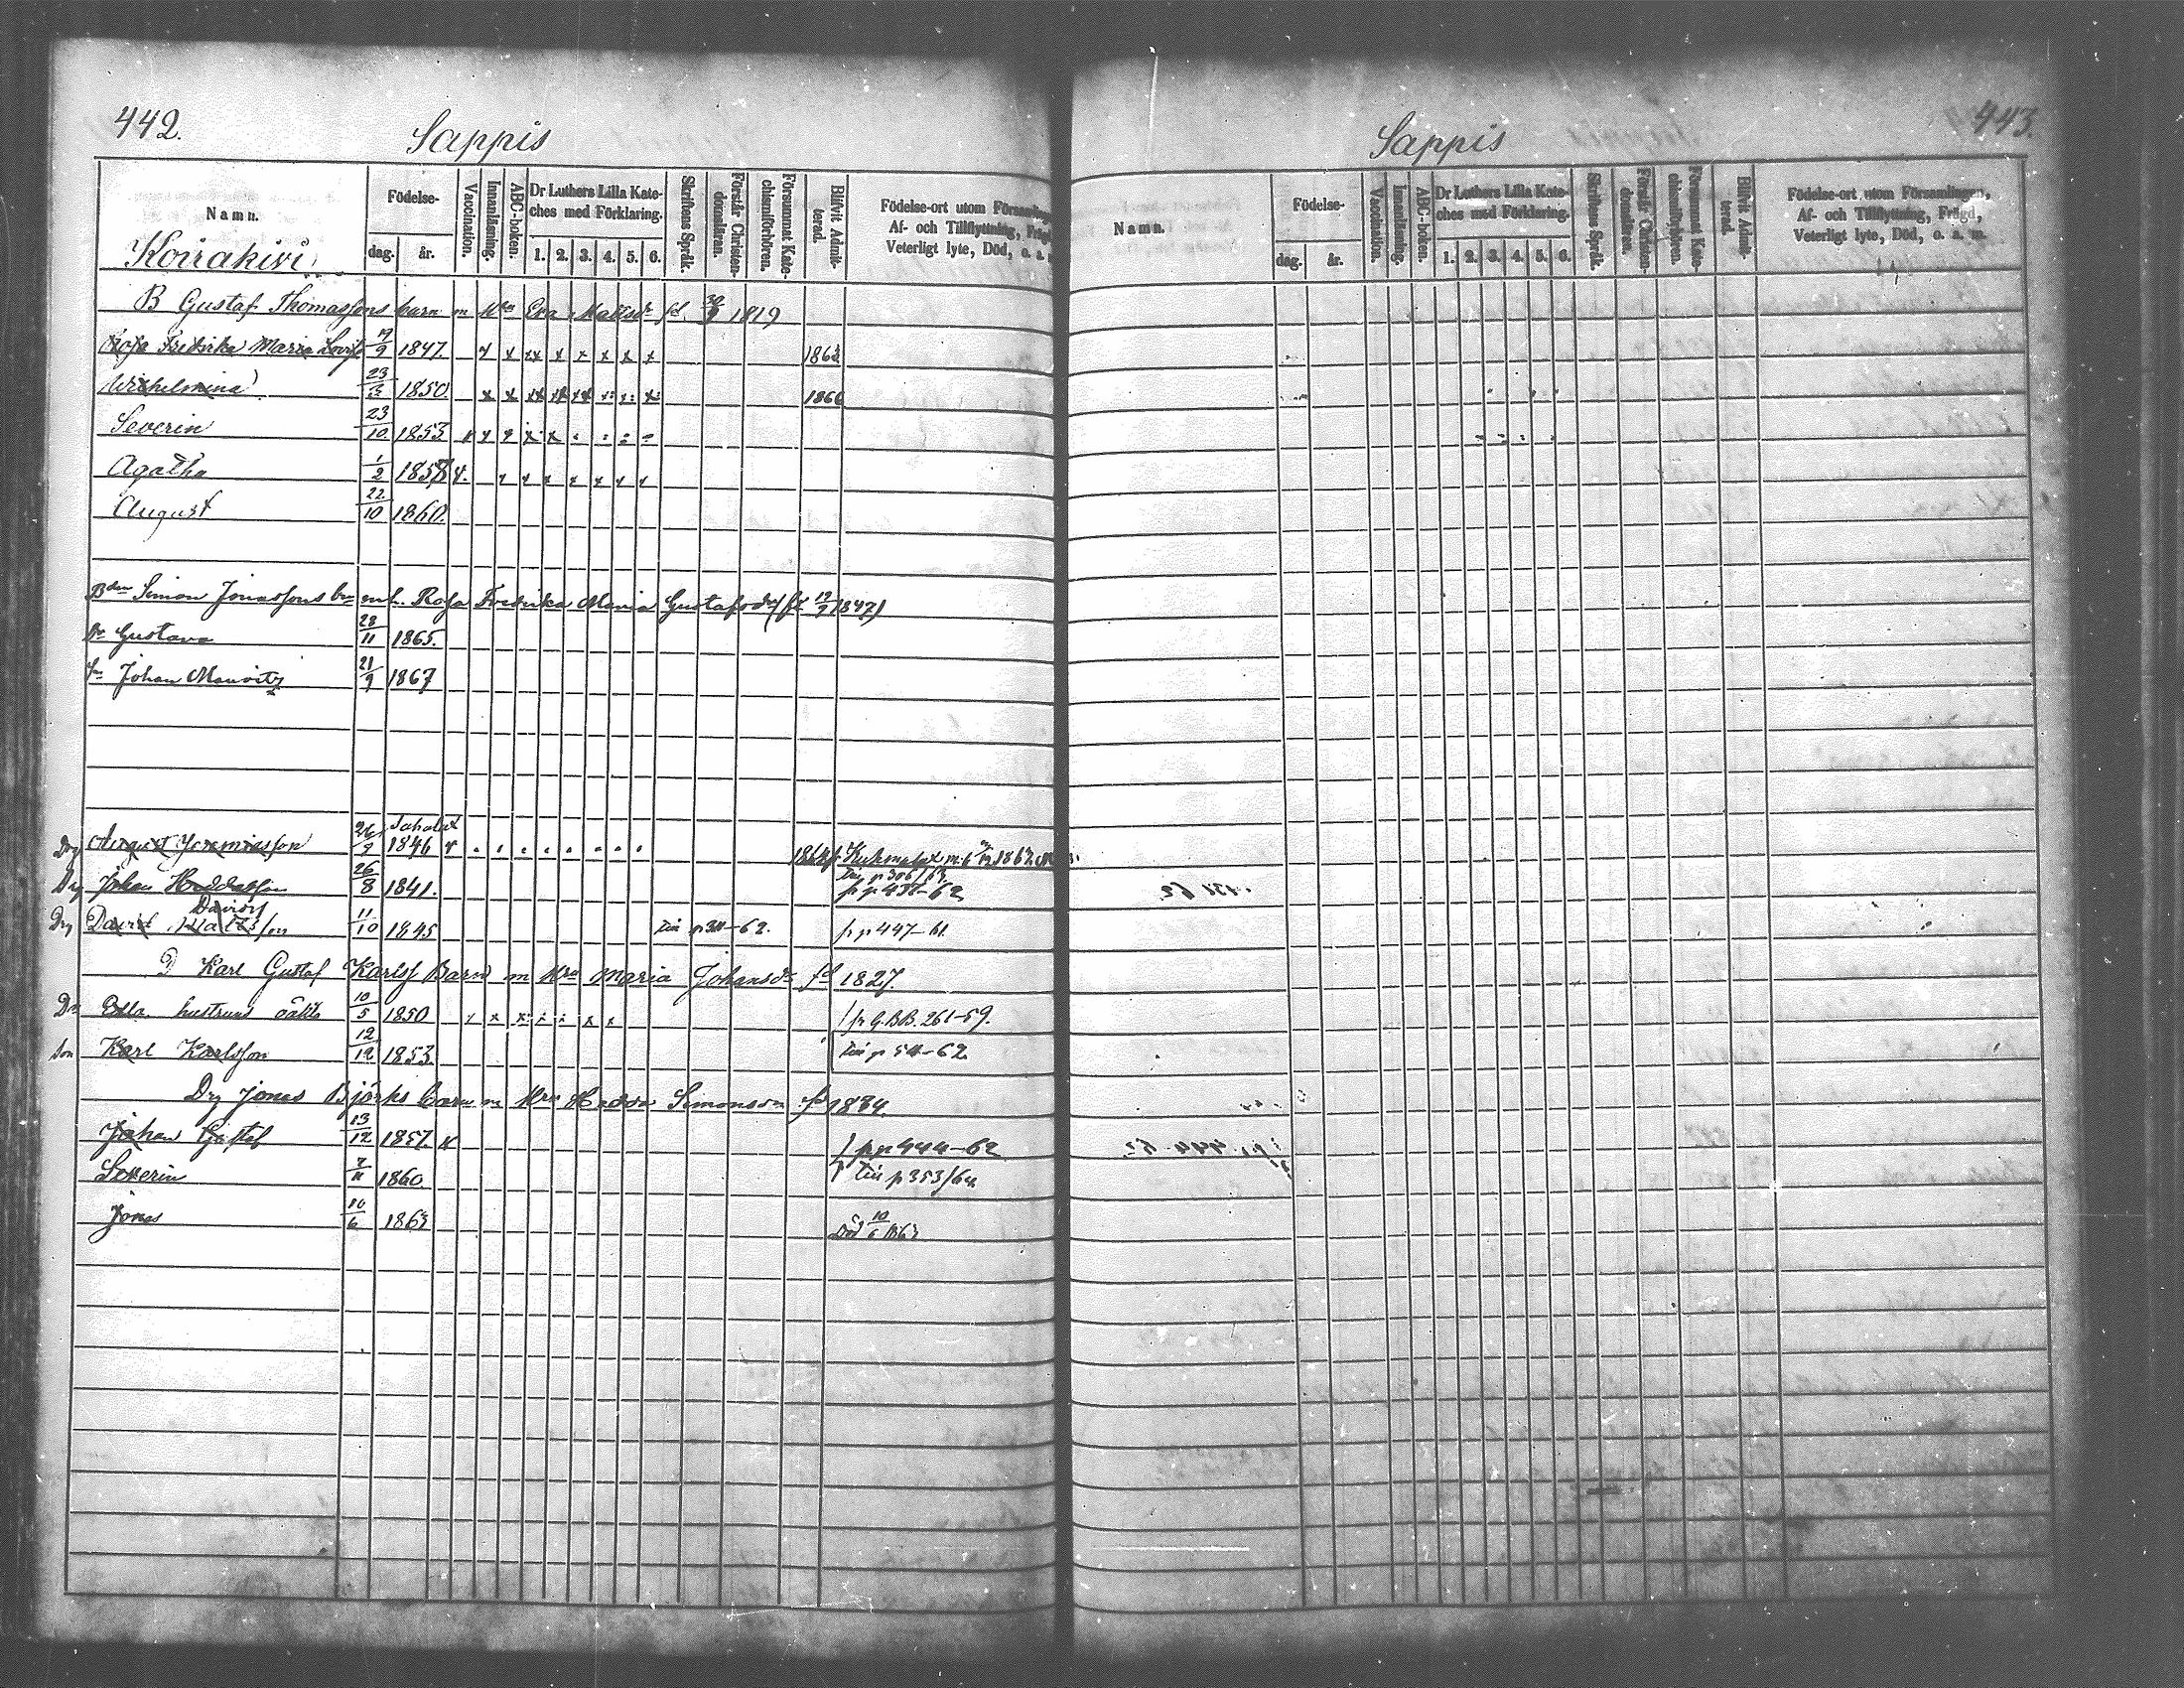 442.
Sappis
Namn.
Födelse-
dag. år.
Vaccination.
Innanläsning.
ABC-boken.
Dr Luthers Lilla Kate-
ches med Förklaring.
1. 2. 3. 4. 5. 6.
Skriftens Språk.
Förstår Christen-
domsläran.
Försummat Kate-
chismiförhören.
Blifvit Admit-
terad.
Födelse-ort utom
Af- och Tillflyttning,
Veterligt lyte, Död, o. a.
Koirakivi
B Gustaf Thomassons barn m Hru Eva Mattsdr fd 1819
Fredrika Maria Lovisa 19/9 1847.
Wilhelmina 23/3 1850. 1866
Severin 23/10 1853
Agatha 1/2 1857
August 22/10 1860.
Simon Jonassons bn m h. Rosa Fredrika Maria Gustafsdr (fd 19/9 1847)
Gustava 28/11 1865.
Johan Mauritz 21/9 1867
Drg August Jeremiasson 26/9 1846
Drg Johan 26/8 1841. fr p 437-62
Drg David Davidsson 11/10 1845 till p 311-62. fr p 447-61
D Karl Gustaf Karlss Barn m Hru Maria Johansdr fd 1827.
hustruns oäkta 10/5 1850 fr G.BB. 261-59.
Son Karl Karlsson 12/12 1853. till p 54-62.
Drg Jonas Björks Barn m Hru Hedda Simonsdr fd 1834.
Johan Gustaf 13/12 1857. fr p 444-62
Severin 7/11 1860. till p 353/64
Jonas 10/6 1863 Död 10/6 1863
443.
Sappis
Namn.
Födelse-
dag. år.
Vaccination.
Innanläsning.
ABC-boken.
Dr Luthers Lilla Kate-
ches med Förklaring.
1. 2. 3. 4. 5. 6.
Skriftens Språk.
Förstår Christen-
domsläran.
Försummat Kate-
chismiförhören.
Blifvit Admit-
terad.
Födelse-ort utom Församlingen,
Af- och Tillflyttning, Frägd,
Veterligt lyte, Död, o. a. m.